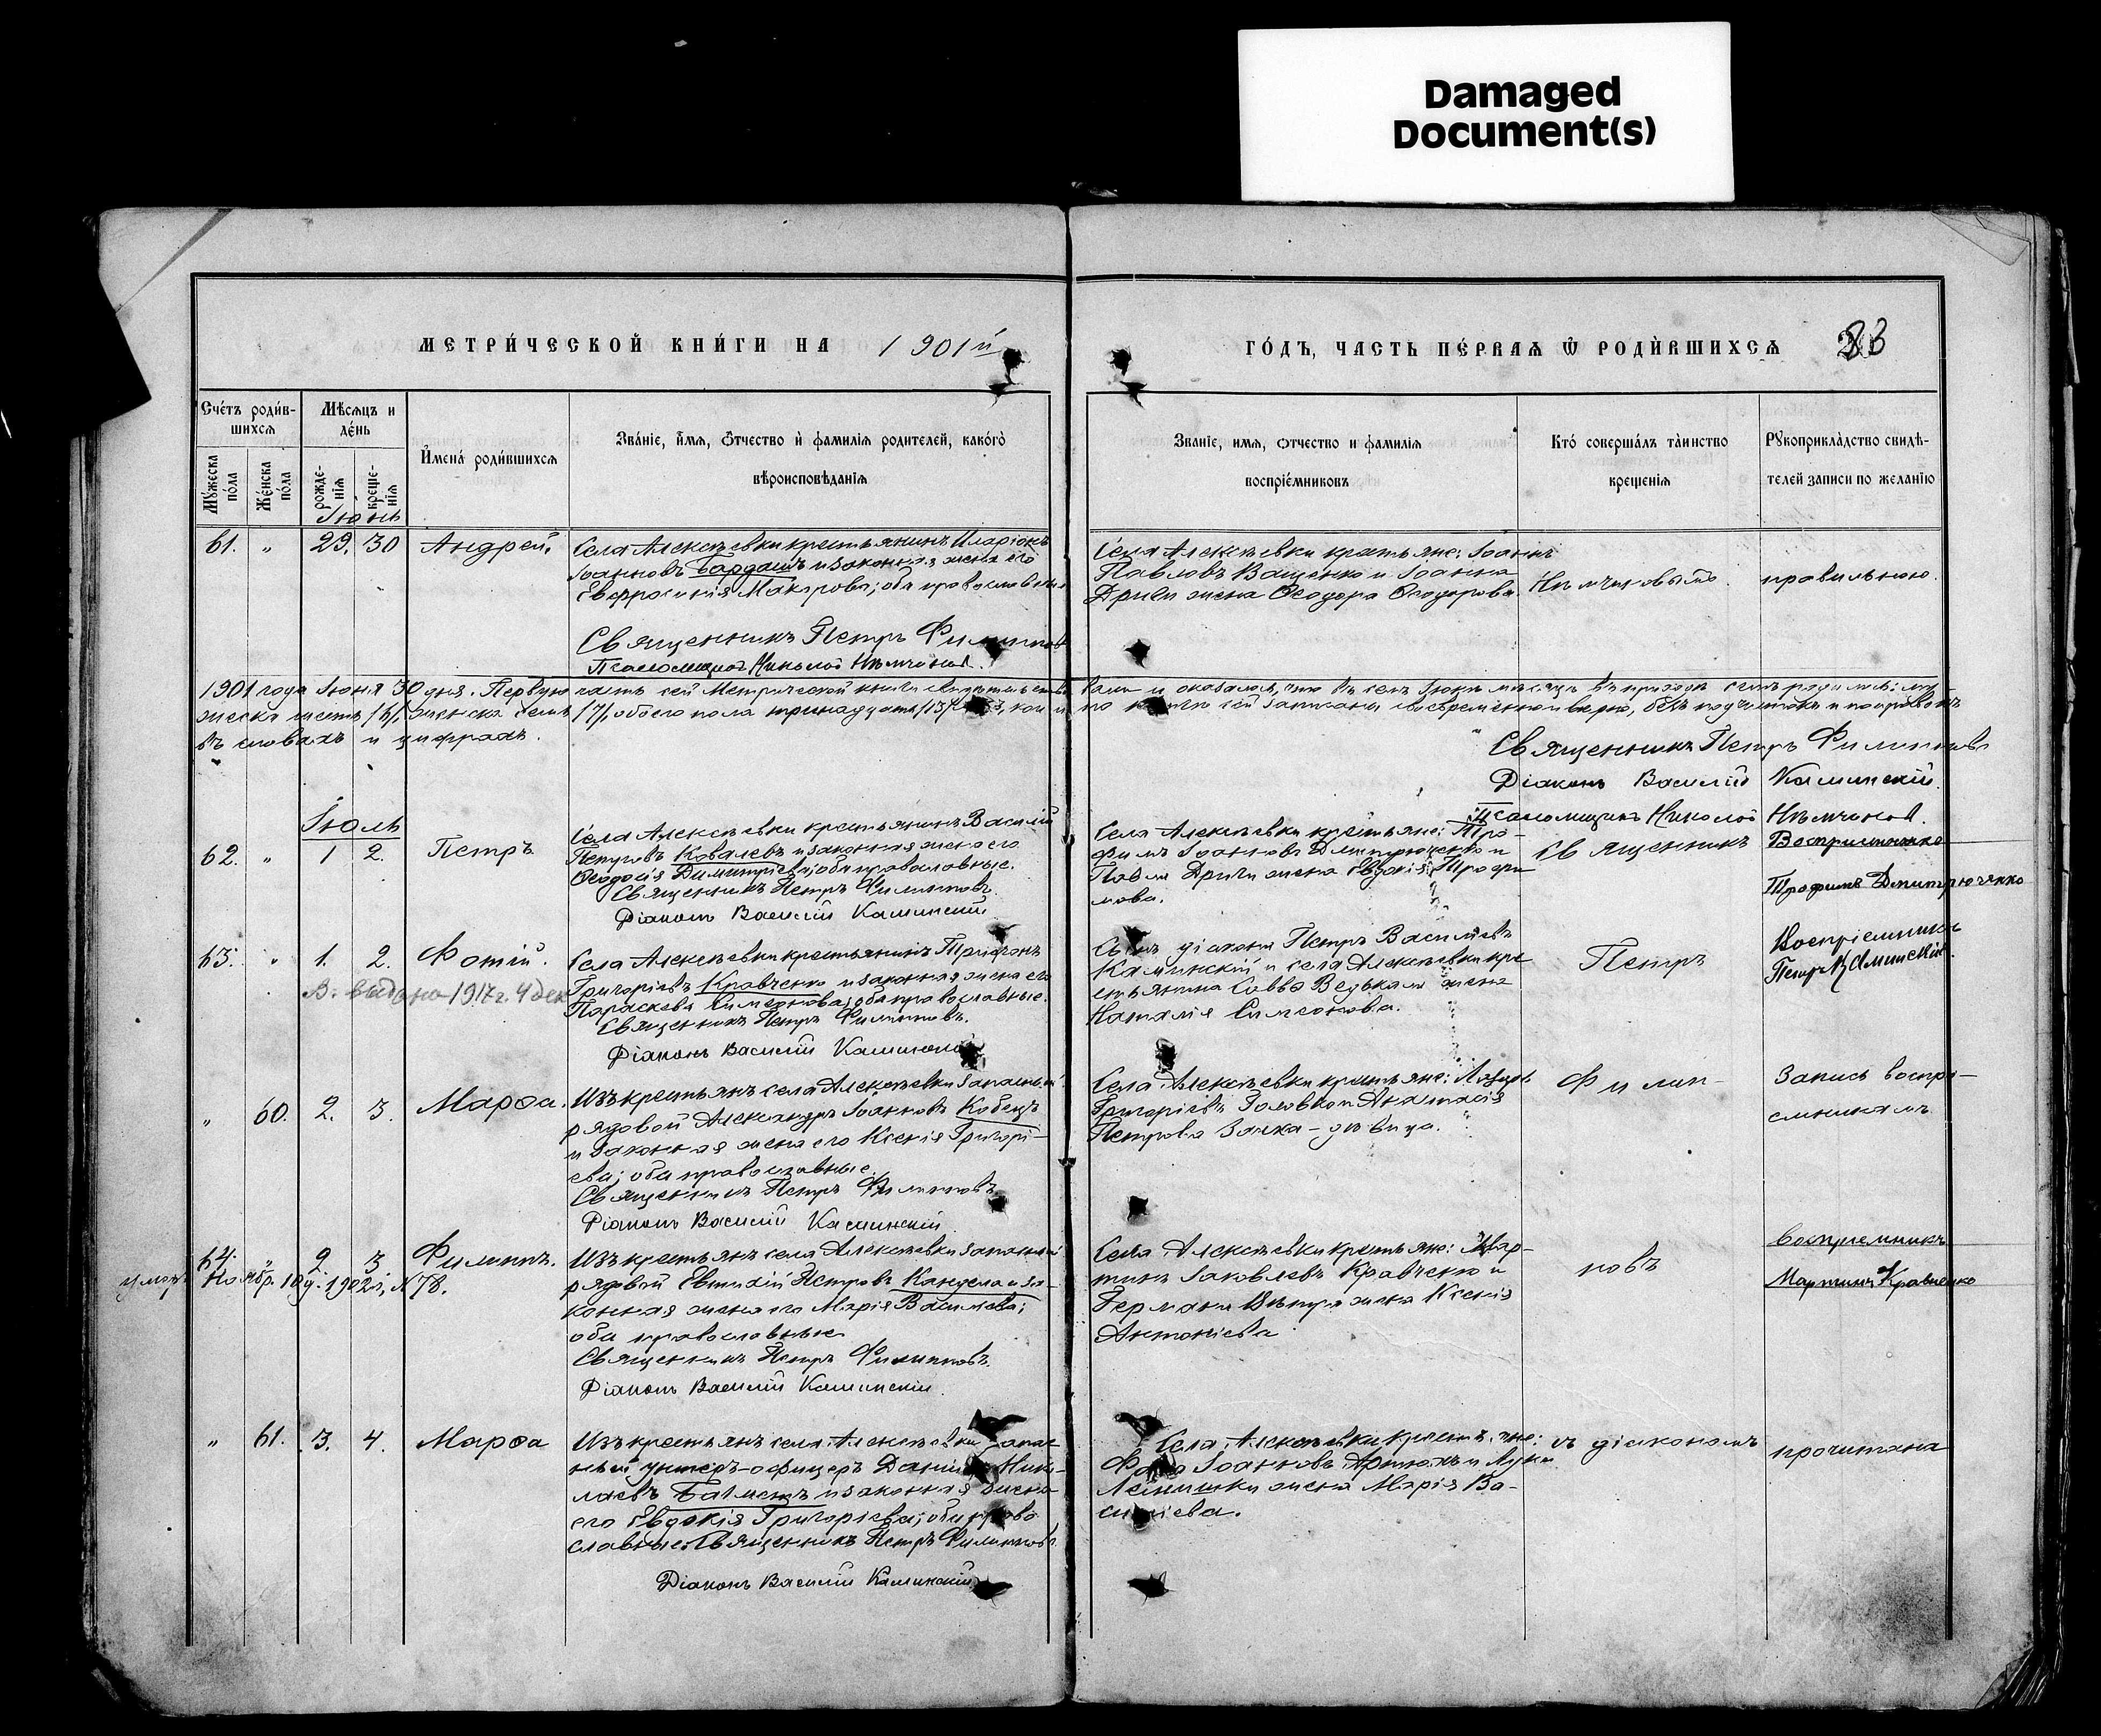 Damaged
Document(s)
МЕТРИ́ЧЕСКОЙ КНИ́ГИ НА 1901й
ГО́ДЪ, ЧАСТЬ ПЕ́РВАЯ Ѿ РОДИ́ВШИХСѦ
Сче́тъ роди́в-
шихсѧ
Мѣсѧцъ и
де́нь
Мꙋ́жеска
по́ла
Же́нска
по́ла
рожде-
нїѧ
креще-
нїѧ
И́мена́ роди́вшихсѧ
Зва́нїе, и́мѧ, ѻ́тчество и҆ фамилїѧ родителей, како́гѡ
вѣроисповѣданїѧ
Званїе, имѧ, ѻтчество и фамилїѧ
воспрїе́мниковъ
Кто́ соверша́лъ та́инство
крещенїѧ
Рꙋкоприкла́дство свидѣ-
телей записи по желанїю
Іюнь
61. " 29. 30 Андрей.
Села Алексѣевки крестьянинъ Иларіонъ
Іоанновъ Бардашъ и законная жена его
Евфросинія Макарова; оба православные
Села Алексѣевки крестьяне: Іоаннъ
Павловъ Ващенко и Іоанна
Дриги жена Ѳеодора Ѳеодорова.
правильною.
Священникъ Петръ Филипповъ
Псаломщикъ Николай Нѣмчиновъ.
1901 года Іюня 30 дня. Первую часть сей Метрической книги свидѣтельство
вали и оказалось, что въ семъ Іюнѣ мѣсяцѣ въ приходѣ семъ родилось: му
жеска шесть /6/, женска семь /7/, обоего пола тринадцать /13/
записаны своевременно и вѣрно, безъ подчистокъ и поправокъ
въ словахъ и цифрахъ.
Священникъ Петръ Филипповъ
Діаконъ Василій Каминскій
Псаломщикъ Николай Нѣмчиновъ.
Іюль
62. " 1 2. Петръ
Села Алексѣевки крестьянинъ Василій
Петровъ Ковалевъ и законная жена его
Ѳеодосія Димитріева; оба православные.
Священникъ Петръ Филипповъ.
Діаконъ Василій Каминскій
Села Алексѣевки крестьяне: Тро-
фимъ Іоанновъ Дмитрюченко и
Павла Дриги жена Евдокія Трофи
мова.
Священникъ
Воспріемникъ
Трофимъ Дмитрюченко
63. " 1. 2. Фотій.
В. выдана 1917 г. 4 дек
Села Алексѣевки крестьянинъ Трифонъ
Григоріевъ Кравченко и законная жена его
Параскева Симеонова; оба православные.
Священникъ Петръ Филипповъ.
Діаконъ Василій Каминскій
Сынъ діакона Петръ Васильевъ
Каминскій и села Алексѣевки кре
стьянина Саввы Ведькала жена
Наталія Симеонова.
Петръ
Воспріемникъ
Петръ Каминскій.
" 60. 2. 3. Марѳа.
Изъ крестьянъ села Алексѣевки запасный
рядовой Александръ Іоанновъ Кобецъ
и законная жена его Ксенія Григорі-
ева; оба православные.
Священникъ Петръ Филипповъ
Діаконъ Василій Каминскій
Села Алексѣевки крестьяне: Лазарь
Григоріевъ Головко и Анастасія
Петрова Заика - дѣвица.
Филип-
Запись воспрі-
емникамъ
64. " 2 3 Филиппъ.
Ноябр. 10 д. 1902 г., N 78.
Изъ крестьянъ села Алексѣевки запасный
рядовой Евтихій Петровъ Кандела и за-
конная жена его Марія Васильева;
оба православные
Священникъ Петръ Филипповъ.
Діаконъ Василій Каминскій.
Села Алексѣевки крестьяне: Мар-
тинъ Іаковлевъ Кравченко и
жена Ксенія
Антоніева
повъ
воспріемникъ
Мартинъ Кравченко
" 61. 3. 4. Марѳа
Изъ крестьянъ села Алексѣевки запас
ный унтеръ-офицеръ Даніилъ Нико-
лаевъ и законная жена
его Евдокія Григоріева; оба право
славные. Священникъ Петръ Филипповъ.
Діаконъ Василій Каминскій
Села Алексѣевки крестьяне:
Іоанновъ Артюхъ и Луки
жена Марія Ва-
сильева.
съ діакономъ
прочитана